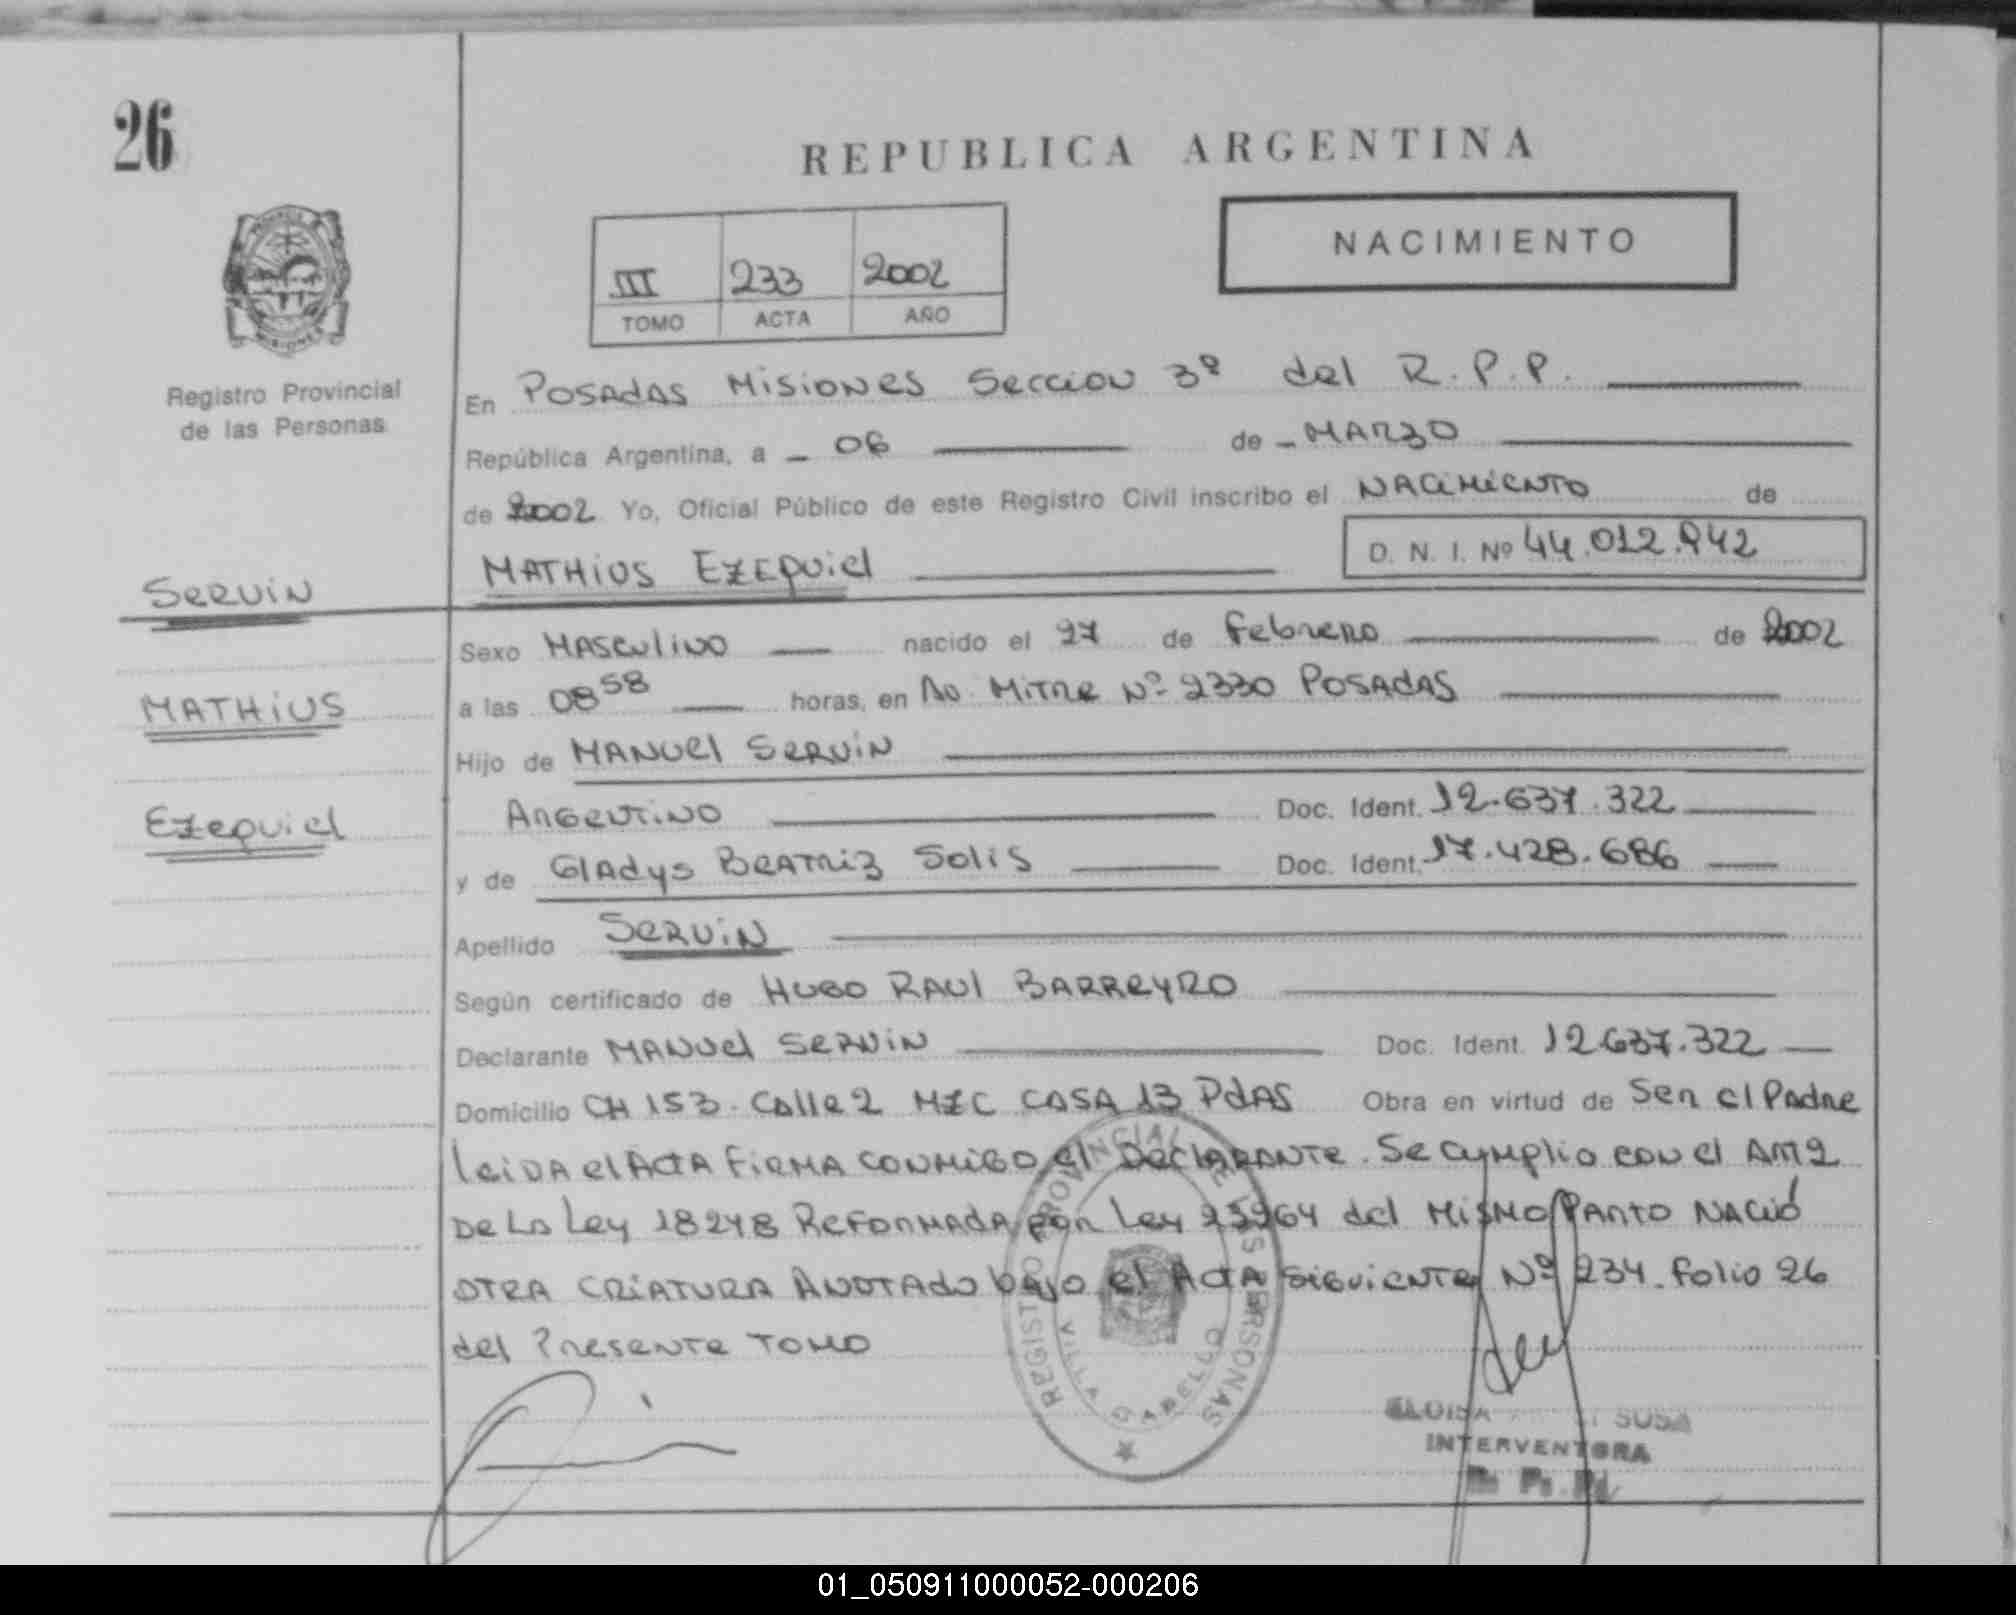 26
REPUBLICA ARGENTINA
NACIMIENTO
III 233 2002
TOMO ACTA AÑO
Registro Provincial
de las Personas
En POSADAS MISIONES SECCION 3º del R.P.P.
República Argentina, a 06 de MARZO
de 2002 Yo, Oficial Público de este Registro Civil inscribo el NACIMIENTO de
MATHIUS EZEQUIEL D. N. I. Nº
SERVIN
Sexo MASCULINO nacido el 27 de Febrero de 2002
MATHIUS
a las 08 58 horas, en Av. MITRE Nº 2330 POSADAS
Hijo de MANUEL SERVIN
EZEQUIEL
ARGENTINO Doc. Ident. 12.637.322
y de GLADYS BEATRIZ SOLIS Doc. Ident. 17.428.686
Apellido SERVIN
Según certificado de HUGO RAUL BARREYRO
Declarante MANUEL SERVIN Doc. Ident. 12.637.322
Domicilio CH 153. Calle 2 MZC CASA 13 PdAS Obra en virtud de Ser el Padre
leida el Acta FIRMA CONMIGO el DECLARANTE. Se cumplio con el ART 2
De La Ley 18248 Reformada por Ley del MISMO PARTO NACIÓ
OTRA CRIATURA ANOTADO bajo el ACTA SIGUIENTE Nº 234. Folio 26
del Presente TOMO
REGISTRO PROVINCIAL DE LAS PERSONAS
VILLA CABELLO
ELOISA SUSA
INTERVENTORA
01_050911000052-000206